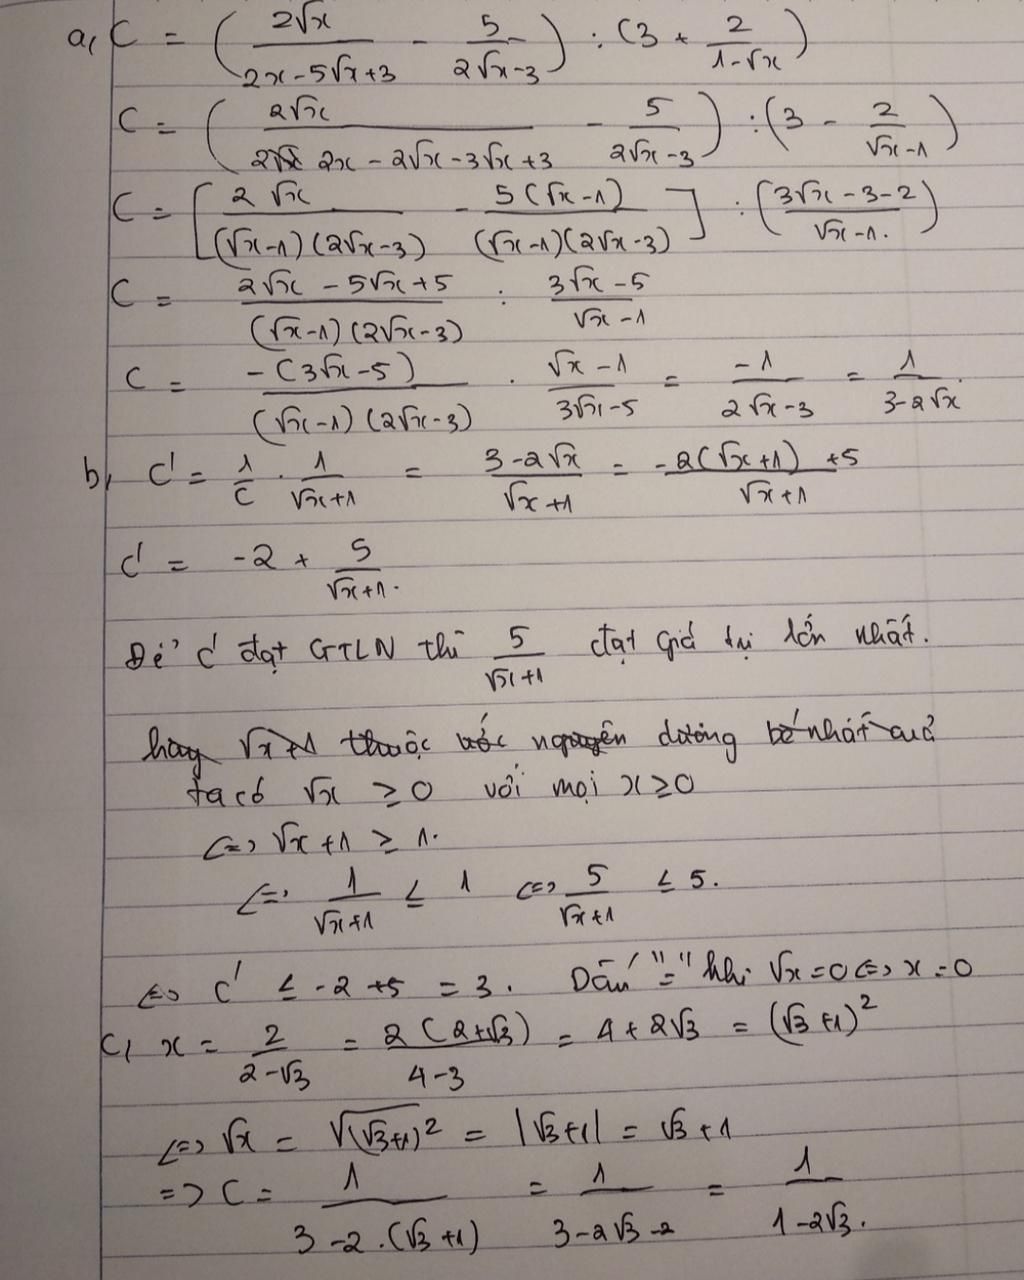 a, C = (2√x / (2x - 5√x + 3) - 5 / (2√x - 3)) : (3 + 2 / (1 - √x))
C = (2√x / (2x - 2√x - 3√x + 3) - 5 / (2√x - 3)) : (3 - 2 / (√x - 1))
C = [2√x / ((√x - 1)(2√x - 3)) - 5(√x - 1) / ((√x - 1)(2√x - 3))] : ((3√x - 3 - 2) / (√x - 1))
C = (2√x - 5√x + 5) / ((√x - 1)(2√x - 3)) : (3√x - 5) / (√x - 1)
C = -(3√x - 5) / ((√x - 1)(2√x - 3)) . (√x - 1) / (3√x - 5) = -1 / (2√x - 3) = 1 / (3 - 2√x)
b, C' = 1/C . 1 / (√x + 1) = (3 - 2√x) / (√x + 1) = (-2(√x + 1) + 5) / (√x + 1)
C' = -2 + 5 / (√x + 1).
Để C' đạt GTLN thì 5 / (√x + 1) đạt giá trị lớn nhất.
hay √x + 1 thuộc ước nguyên dương bé nhất của
ta có √x ≥ 0 với mọi x ≥ 0
<=> √x + 1 ≥ 1.
<=> 1 / (√x + 1) ≤ 1 <=> 5 / (√x + 1) ≤ 5.
<=> C' ≤ -2 + 5 = 3. Dấu "=" khi √x = 0 <=> x = 0
c, x = 2 / (2 - √3) = 2(2 + √3) / (4 - 3) = 4 + 2√3 = (√3 + 1)²
<=> √x = √((√3 + 1)²) = |√3 + 1| = √3 + 1
=> C = 1 / (3 - 2.(√3 + 1)) = 1 / (3 - 2√3 - 2) = 1 / (1 - 2√3).